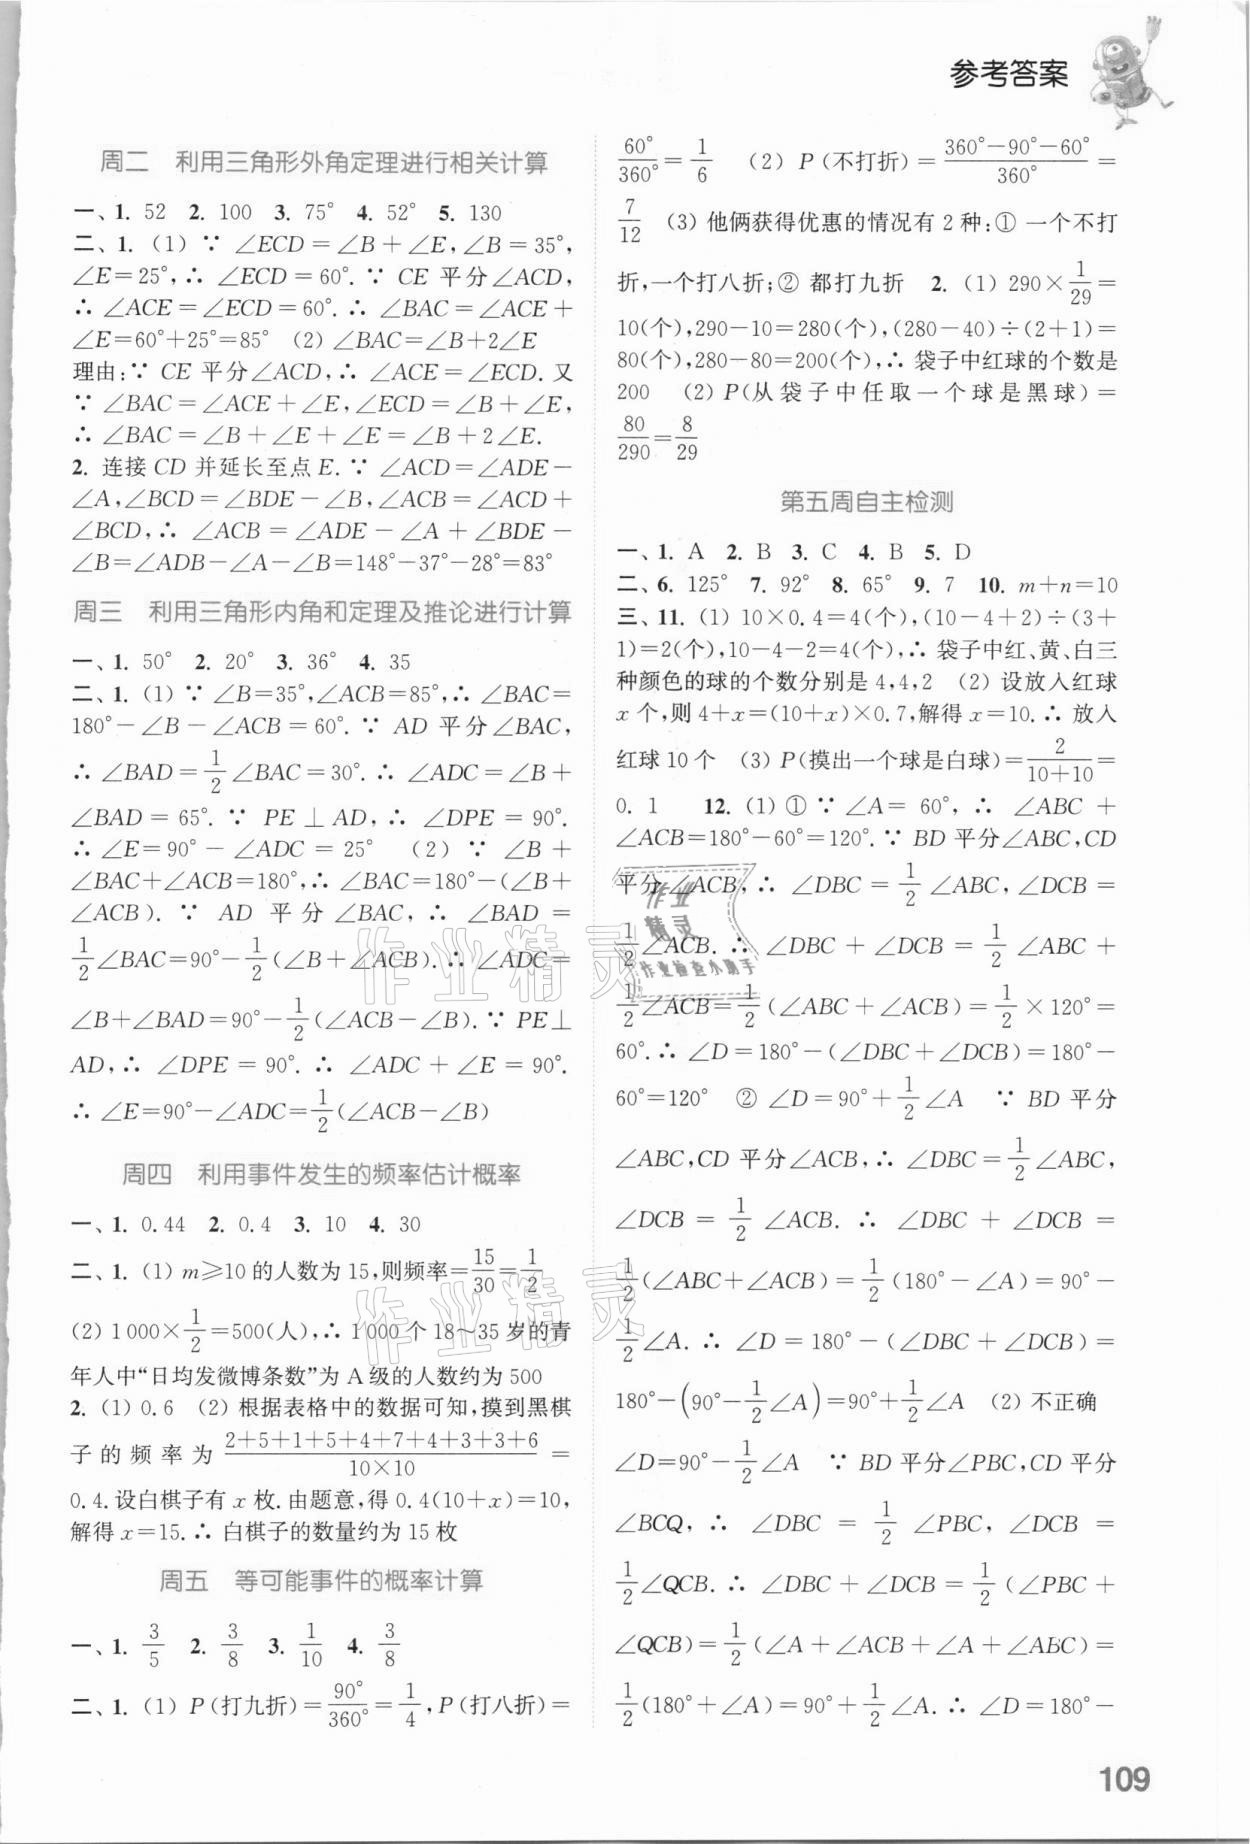 参考答案
周二　利用三角形外角定理进行相关计算
一、1. 52　2. 100　3. 75°　4. 52°　5. 130
二、1. (1) ∵ ∠ECD=∠B+∠E,∠B=35°,
∠E=25°,∴ ∠ECD=60°. ∵ CE 平分∠ACD,
∴ ∠ACE=∠ECD=60°. ∴ ∠BAC=∠ACE+
∠E=60°+25°=85°　(2) ∠BAC=∠B+2∠E
理由:∵ CE 平分∠ACD,∴ ∠ACE=∠ECD. 又
∵ ∠BAC=∠ACE+∠E,∠ECD=∠B+∠E,
∴ ∠BAC=∠B+∠E+∠E=∠B+2∠E.
2. 连接 CD 并延长至点 E. ∵ ∠ACD=∠ADE−
∠A,∠BCD=∠BDE−∠B,∠ACB=∠ACD+
∠BCD,∴ ∠ACB=∠ADE−∠A+∠BDE−
∠B=∠ADB−∠A−∠B=148°−37°−28°=83°
周三　利用三角形内角和定理及推论进行计算
一、1. 50°　2. 20°　3. 36°　4. 35
二、1. (1) ∵ ∠B=35°,∠ACB=85°,∴ ∠BAC=
180°−∠B−∠ACB=60°. ∵ AD 平分∠BAC,
∴ ∠BAD=1/2∠BAC=30°. ∴ ∠ADC=∠B+
∠BAD=65°. ∵ PE⊥AD,∴ ∠DPE=90°.
∴ ∠E=90°−∠ADC=25°　(2) ∵ ∠B+
∠BAC+∠ACB=180°,∴ ∠BAC=180°−(∠B+
∠ACB). ∵ AD 平分∠BAC,∴ ∠BAD=
1/2∠BAC=90°−1/2(∠B+∠ACB). ∴ ∠ADC=
∠B+∠BAD=90°−1/2(∠ACB−∠B). ∵ PE⊥
AD,∴ ∠DPE=90°. ∴ ∠ADC+∠E=90°.
∴ ∠E=90°−∠ADC=1/2(∠ACB−∠B)
周四　利用事件发生的频率估计概率
一、1. 0.44　2. 0.4　3. 10　4. 30
二、1. (1) m⩾10 的人数为 15,则频率=15/30=1/2
(2) 1 000×1/2=500(人),∴ 1 000 个 18～35 岁的青
年人中“日均发微博条数”为 A 级的人数约为 500
2. (1) 0.6　(2) 根据表格中的数据可知,摸到黑棋
子的频率为(2+5+1+5+4+7+4+3+3+6)/(10×10)=
0.4. 设白棋子有 x 枚. 由题意,得 0.4(10+x)=10,
解得 x=15. ∴ 白棋子的数量约为 15 枚
周五　等可能事件的概率计算
一、1. 3/5　2. 3/8　3. 1/10　4. 3/8
二、1. (1) P(打九折)=90°/360°=1/4,P(打八折)=
60°/360°=1/6　(2) P(不打折)=(360°−90°−60°)/360°=
7/12　(3) 他俩获得优惠的情况有 2 种:① 一个不打
折,一个打八折;② 都打九折　2. (1) 290×1/29=
10(个),290−10=280(个),(280−40)÷(2+1)=
80(个),280−80=200(个),∴ 袋子中红球的个数是
200　(2) P(从袋子中任取一个球是黑球)=
80/290=8/29
第五周自主检测
一、1. A　2. B　3. C　4. B　5. D
二、6. 125°　7. 92°　8. 65°　9. 7　10. m+n=10
三、11. (1) 10×0.4=4(个),(10−4+2)÷(3+
1)=2(个),10−4−2=4(个),∴ 袋子中红、黄、白三
种颜色的球的个数分别是 4,4,2　(2) 设放入红球
x 个,则 4+x=(10+x)×0.7,解得 x=10. ∴ 放入
红球 10 个　(3) P(摸出一个球是白球)=2/(10+10)=
0.1　12. (1) ① ∵ ∠A=60°,∴ ∠ABC+
∠ACB=180°−60°=120°. ∵ BD 平分∠ABC,CD
平分∠ACB,∴ ∠DBC=1/2∠ABC,∠DCB=
1/2∠ACB. ∴ ∠DBC+∠DCB=1/2∠ABC+
1/2∠ACB=1/2(∠ABC+∠ACB)=1/2×120°=
60°. ∴ ∠D=180°−(∠DBC+∠DCB)=180°−
60°=120°　② ∠D=90°+1/2∠A　∵ BD 平分
∠ABC,CD 平分∠ACB,∴ ∠DBC=1/2∠ABC,
∠DCB=1/2∠ACB. ∴ ∠DBC+∠DCB=
1/2(∠ABC+∠ACB)=1/2(180°−∠A)=90°−
1/2∠A. ∴ ∠D=180°−(∠DBC+∠DCB)=
180°−(90°−1/2∠A)=90°+1/2∠A　(2) 不正确
∠D=90°−1/2∠A　∵ BD 平分∠PBC,CD 平分
∠BCQ,∴ ∠DBC=1/2∠PBC,∠DCB=
1/2∠QCB. ∴ ∠DBC+∠DCB=1/2(∠PBC+
∠QCB)=1/2(∠A+∠ACB+∠A+∠ABC)=
1/2(180°+∠A)=90°+1/2∠A. ∴ ∠D=180°−
109
作业精灵
作业精灵
作业
精灵
作业检查小助手